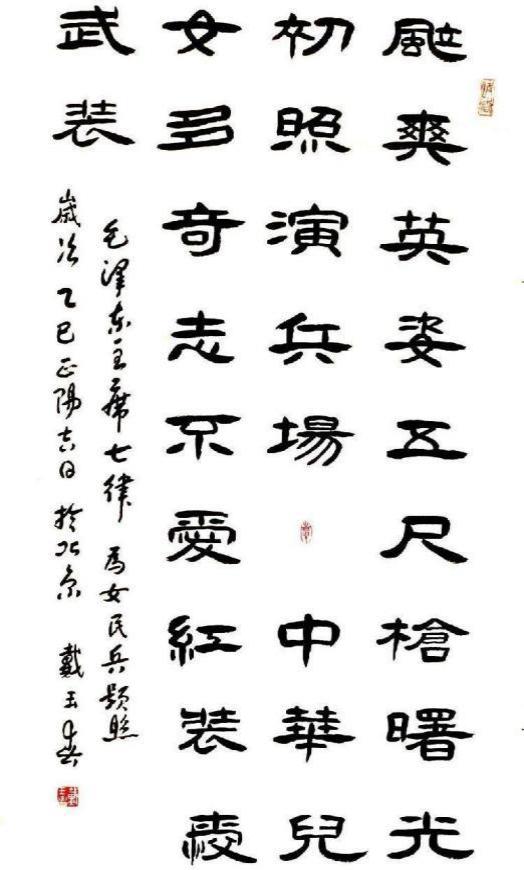 颯爽英姿五尺槍曙光
初照演兵場 中華兒
女多奇志不愛紅裝愛
武裝
毛澤东主席七律 为女民兵題照
歲次乙巳正陽吉日於北京 戴玉